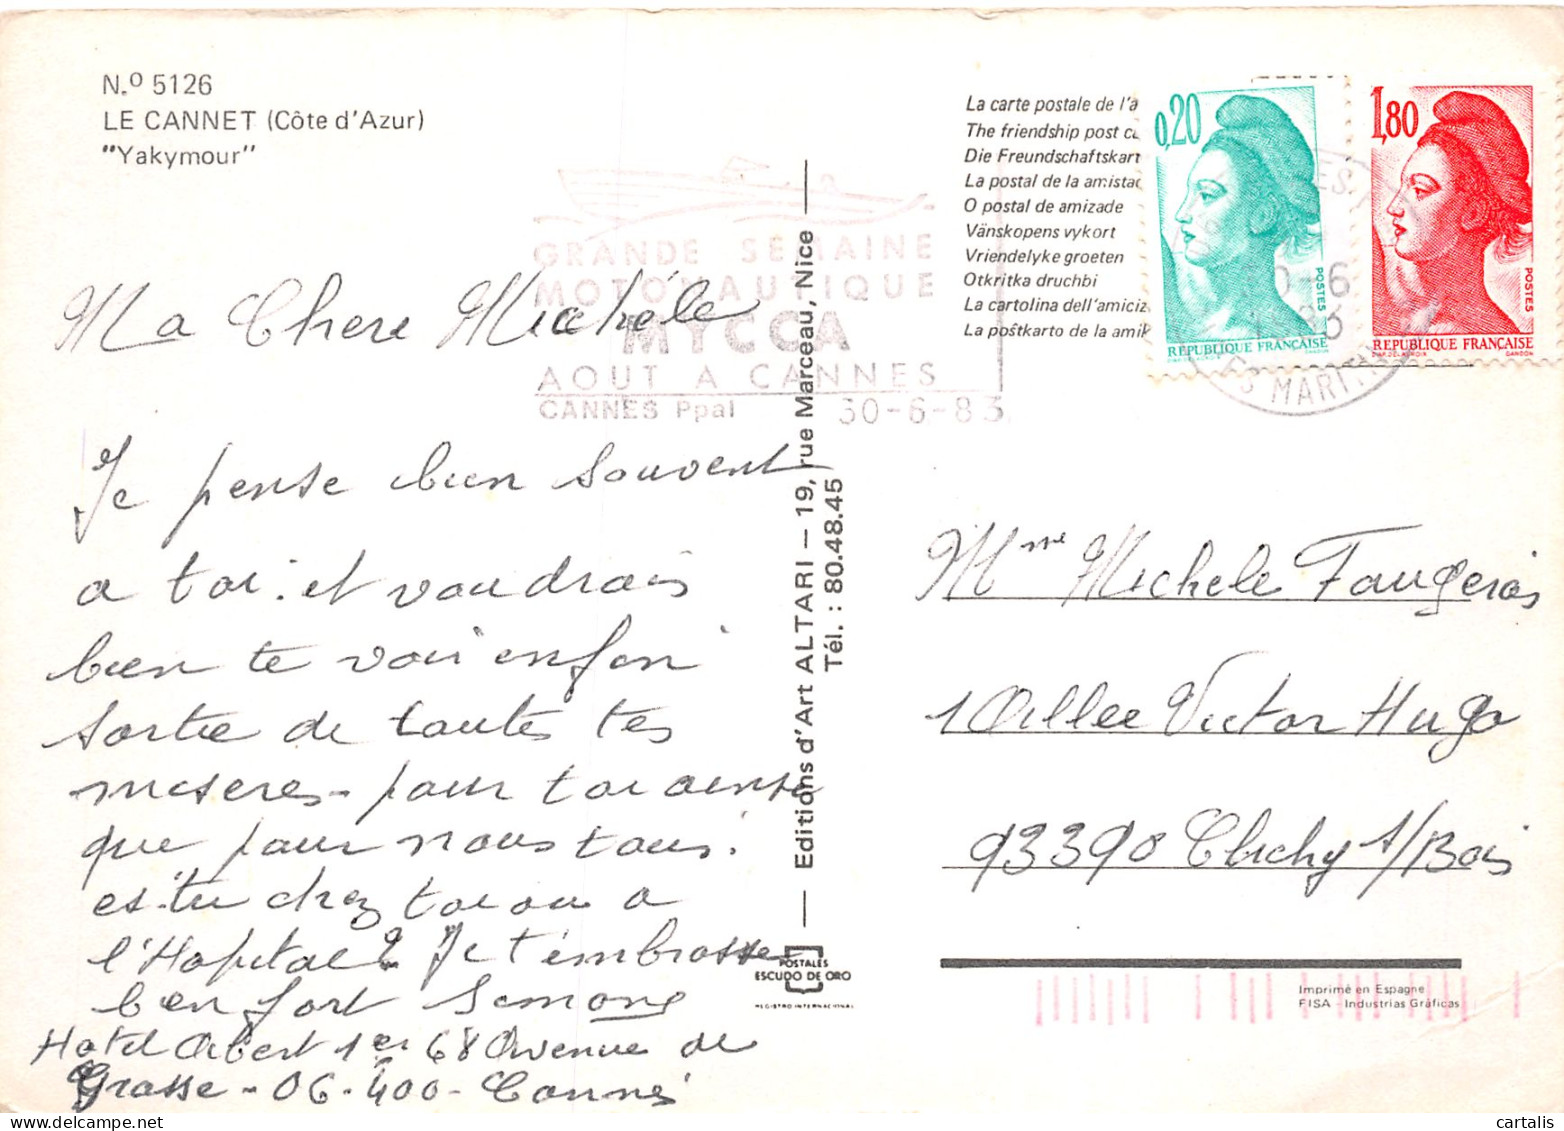 N.º 5126
LE CANNET (Côte d'Azur)
"Yakymour"
GRANDE SEMAINE
MOTONAUTIQUE
MYCCA
AOUT A CANNES
CANNES Ppal 30-6-83
La carte postale de l'a
The friendship post ca
Die Freundschaftskart
La postal de la amistad
O postal de amizade
Vänskopens vykort
Vriendelyke groeten
Otkritka druchbi
La cartolina dell'amiciz
La poŝtkarto de la amik
0,20
POSTES
REPUBLIQUE FRANÇAISE
GANDON
1,80
POSTES
REPUBLIQUE FRANÇAISE
GANDON
Ma Chere Michéle
Je pense bien souvent
a toi. et voudrais
bien te voir enfin
sortie de toutes tes
miseres - pour toi ainsi
que pour nous tous.
es-tu chez toi ou a
l'Hopital ? Je t'embrasse
bien fort Simone
Hotel Albert 1er 68 Avenue de
Grasse - 06-400 - Cannes
Editions d'Art ALTARI — 19, rue Marceau, Nice
Tél. : 80.48.45
POSTALES
ESCUDO DE ORO
REGISTRO INTERNACIONAL
Mme Michele Faugerais
1 Allee Victor Hugo
93390 Clichy s/Bois
Imprimé en Espagne
FISA - Industrias Gráficas
cartalis